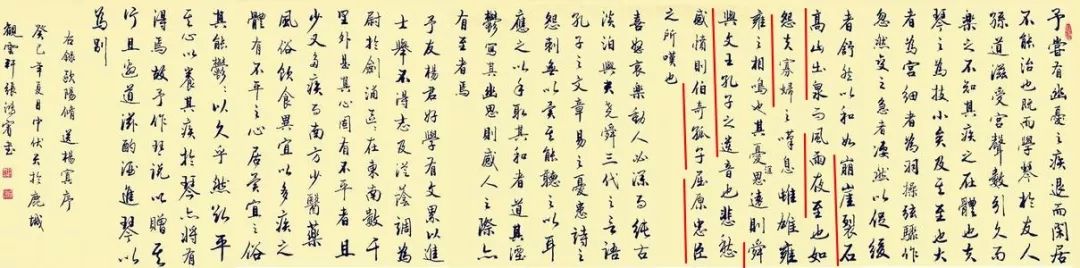 予嘗有幽憂之疾退而閒居
不能治也既而學琴於友人
孫道滋受宮聲數引久而
樂之不知其疾之在體也夫
琴之為技小矣及其至也大
者為宮細者為羽操弦驟作
忽然变之急者凄然以促緩
者舒然以和如崩崖裂石
高山出泉而風雨夜至也如
怨夫寡婦之嘆息雌雄雍
雍之相鳴也其憂深思遠則舜
與文王孔子之遺音也悲愁
感憤則伯奇孤子屈原忠臣
之所嘆也
喜怒哀樂動人必深而純古
淡泊與夫堯舜三代之言語
孔子之文章易之憂患詩之
怨刺無以異其能聽之以耳
應之以手取其和者道其湮
鬱寫其幽思則感人之際亦
有至者焉
予友楊君好學有文累以進
士舉不得志及從蔭調為
尉於劍浦區區在東南數千
里外是其心固有不平者且
少又多疾而南方少醫藥
風俗飲食異宜以多疾之
體有不平之心居異宜之俗
其能鬱鬱以久乎然欲平
其心以養其疾於琴亦將有
得焉故予作琴說以贈其
行且邀道滋酌酒進琴以
為別
右録歐陽脩送楊寘序
癸巳年夏日中伏於鹿城
觀雲軒張鴻賓書